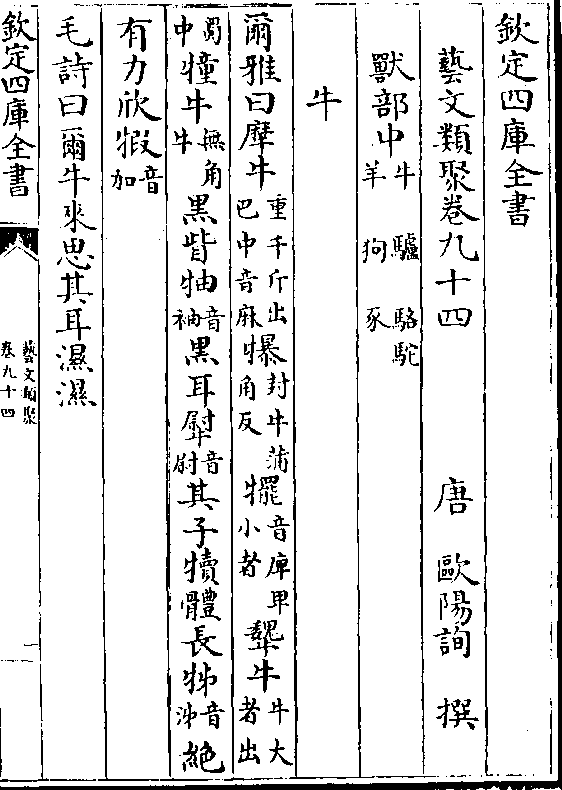 欽定四庫全書
藝文類聚卷九十四 唐 歐陽詢 撰
獸部中 牛 驢 駱駝 羊 狗 豕
牛
爾雅曰犘牛重千斤出巴中音麻犦封牛蒲角反犤音庳卑小者犩牛牛大者出
蜀中犝牛無角牛黑眥牰音袖黑耳犚音尉其子犢體長牬音沛絕
有力欣犌音加
毛詩曰爾牛來思其耳濕濕
欽定四庫全書
藝文類聚
卷九十四
一